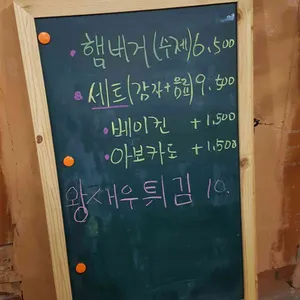 • 햄버거(수제) 6.500
• 세트(감자+음료) 9.500
• 베이컨 +1.500
• 아보카도 +1.500
왕새우튀김 10.